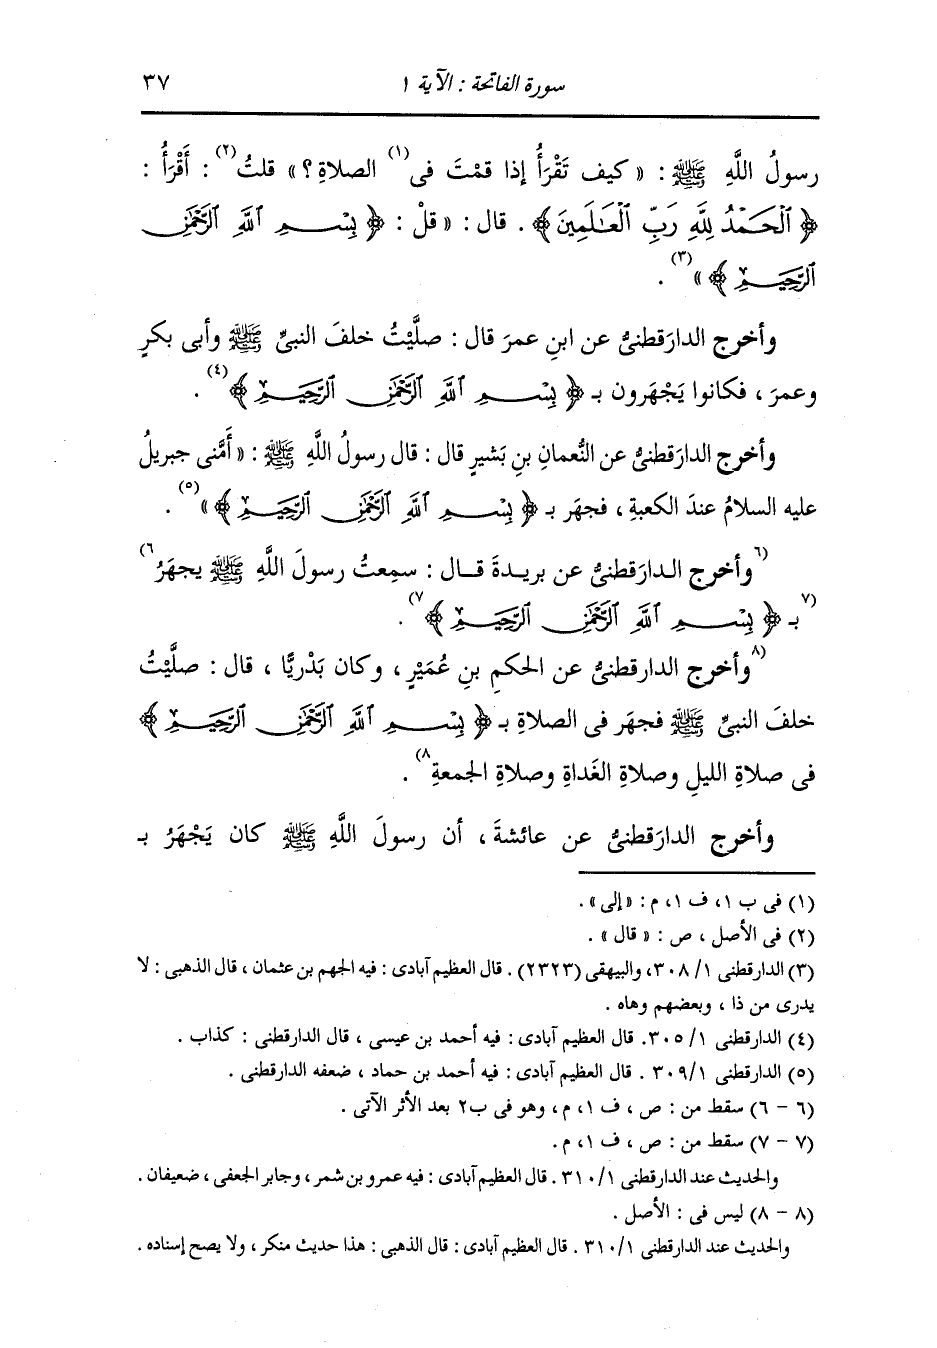 سورة الفاتحة : الآية ١ ٣٧
رسولُ اللَّهِ ﷺ : « كيف تَقْرَأُ إذا قمْتَ فى(١) الصلاةِ ؟ » قلتُ(٢) : أَقْرَأُ :
﴿ ٱلْحَمْدُ لِلَّهِ رَبِّ ٱلْعَـٰلَمِينَ﴾ . قال : « قلْ : ﴿ بِسْمِ ٱللَّهِ ٱلرَّحْمَـٰنِ
ٱلرَّحِيمِ ﴾ »(٣) .
وأخرج الدارَقطنىُّ عن ابنِ عمرَ قال : صلَّيْتُ خلفَ النبىِّ ﷺ وأبى بكرٍ
وعمرَ ، فكانوا يَجْهَرون بـ ﴿ بِسْمِ ٱللَّهِ ٱلرَّحْمَـٰنِ ٱلرَّحِيمِ ﴾(٤) .
وأخرج الدارَقطنىُّ عن النُّعمانِ بنِ بَشيرٍ قال : قال رسولُ اللَّهِ ﷺ : « أَمَّنى جبريلُ
عليه السلامُ عندَ الكعبةِ ، فجهَر بـ ﴿ بِسْمِ ٱللَّهِ ٱلرَّحْمَـٰنِ ٱلرَّحِيمِ ﴾ »(٥) .
(٦وأخرج الدارَقطنىُّ عن بريدةَ قال : سمِعتُ رسولَ اللَّهِ ﷺ يجهَرُ٦)
(٧بـ ﴿ بِسْمِ ٱللَّهِ ٱلرَّحْمَـٰنِ ٱلرَّحِيمِ ﴾٧) .
(٨وأخرج الدارقطنىُّ عن الحكمِ بنِ عُمَيْرٍ ، وكان بَدْريًّا ، قال : صلَّيْتُ
خلفَ النبىِّ ﷺ فجهَر فى الصلاةِ بـ ﴿ بِسْمِ ٱللَّهِ ٱلرَّحْمَـٰنِ ٱلرَّحِيمِ ﴾
فى صلاةِ الليلِ وصلاةِ الغَداةِ وصلاةِ الجمعةِ٨) .
وأخرج الدارَقطنىُّ عن عائشةَ ، أن رسولَ اللَّهِ ﷺ كان يَجْهَرُ بـ
(١) فى ب ١، ف ١، م : « إلى » .
(٢) فى الأصل ، ص : « قال » .
(٣) الدارقطنى ١/ ٣٠٨، والبيهقى (٢٣٢٣) . قال العظيم آبادى : فيه الجهم بن عثمان ، قال الذهبى : لا
يدرى من ذا ، وبعضهم وهاه .
(٤) الدارقطنى ١/ ٣٠٥. قال العظيم آبادى : فيه أحمد بن عيسى ، قال الدارقطنى : كذاب .
(٥) الدارقطنى ٣٠٩/١ . قال العظيم آبادى : فيه أحمد بن حماد ، ضعفه الدارقطنى .
(٦ - ٦) سقط من : ص ، ف ١، م ، وهو فى ب٢ بعد الأثر الآتى .
(٧ - ٧) سقط من : ص ، ف ١، م.
والحديث عند الدارقطنى ٣١٠/١ . قال العظيم آبادى : فيه عمرو بن شمر ، وجابر الجعفى ، ضعيفان .
(٨ - ٨) ليس فى : الأصل .
والحديث عند الدارقطنى ٣١٠/١ . قال العظيم آبادى : قال الذهبى : هذا حديث منكر ، ولا يصح إسناده .